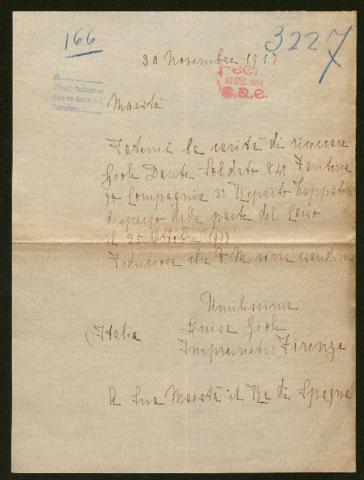 166
3227
30 Novembre 1917
Maestà
Fatemi la carità di ricercare
Dante Soldato 84º Fanteria
Compagnia Reparto Zappatori
disperso dalle parte del Carso
il 25 Ottobre 1917
Fiduciosa che V. M. vorrà esaudirmi
Umilissima
Luisa
(Italia
Impruneta) Firenze
A Sua Maestà il Re di Spagna